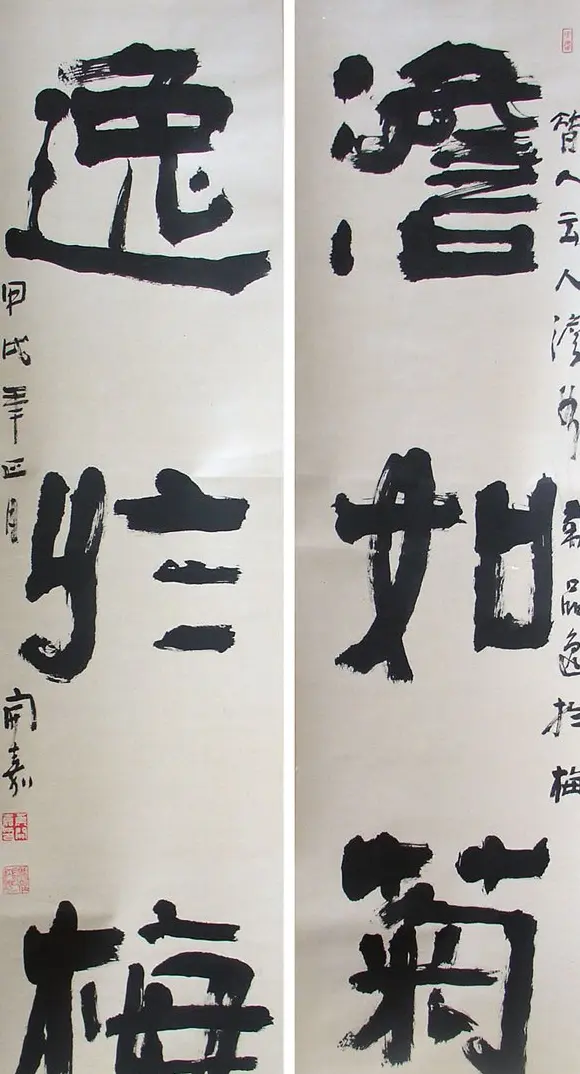 昔人云人澹如菊品逸於梅
澹如菊
逸於梅
甲戌年正月
開嘉